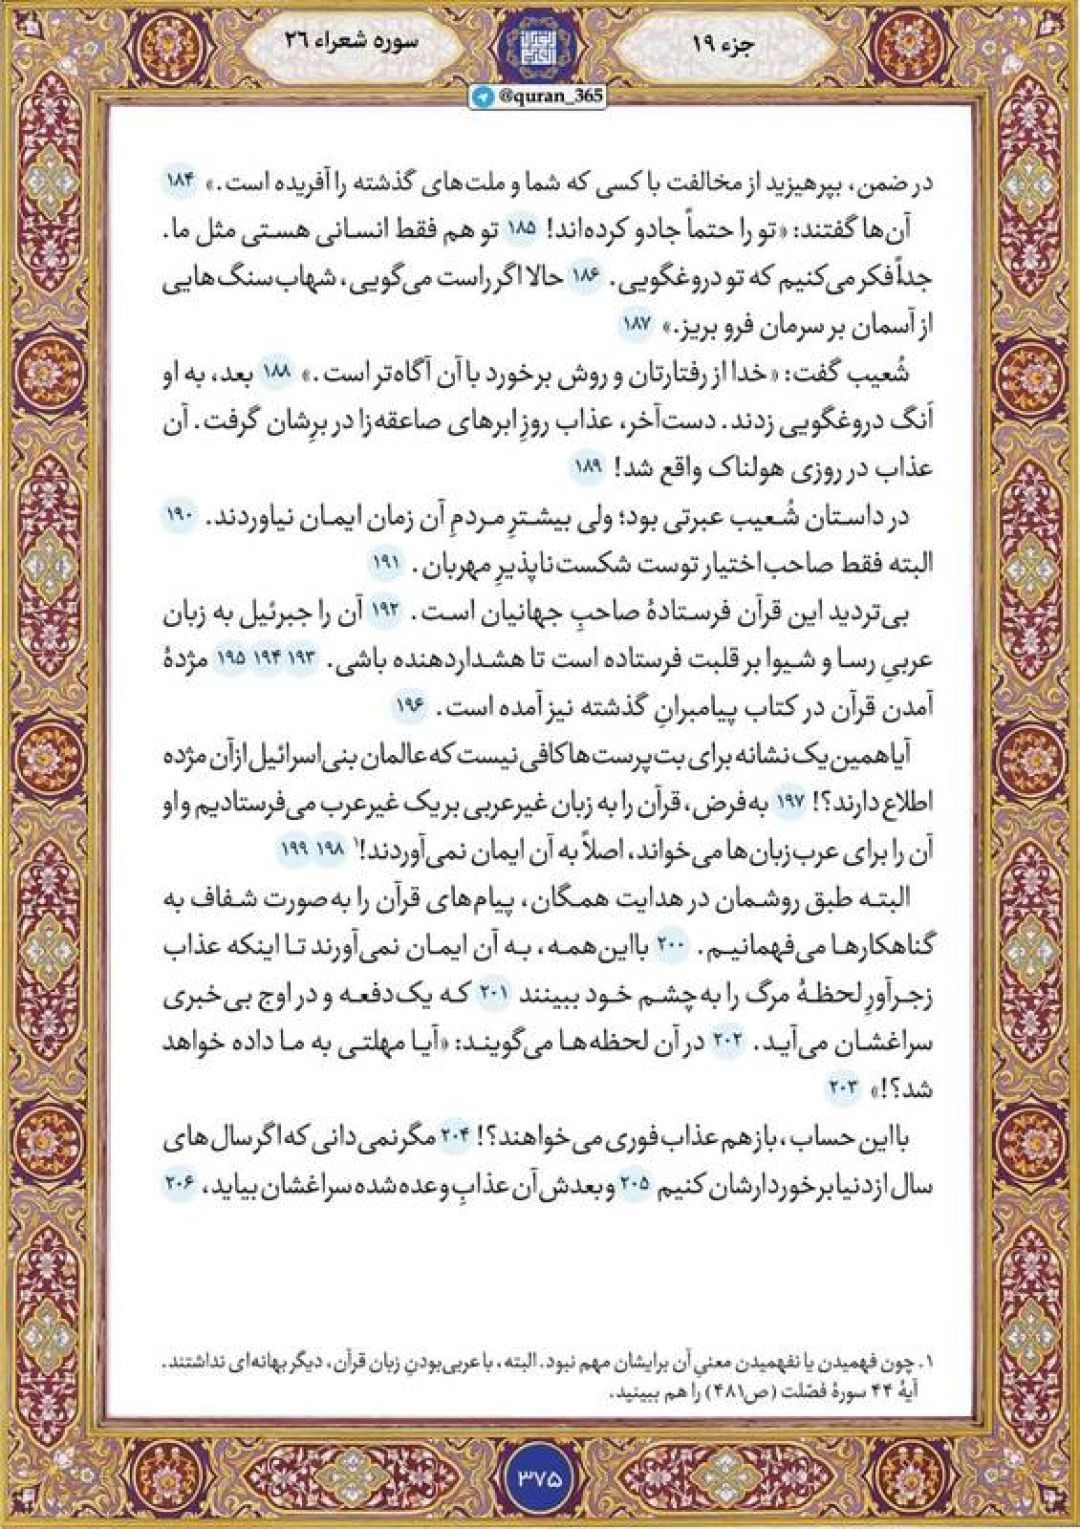 جزء ۱۹
سوره شعراء ۲۶
@quran_365
در ضمن، بپرهیزید از مخالفت با کسی که شما و ملت‌های گذشته را آفریده است.» ۱۸۴
آن‌ها گفتند: «تو را حتماً جادو کرده‌اند! ۱۸۵ تو هم فقط انسانی هستی مثل ما.
جداً فکر می‌کنیم که تو دروغگویی. ۱۸۶ حالا اگر راست می‌گویی، شهاب‌سنگ‌هایی
از آسمان بر سرمان فرو بریز.» ۱۸۷
شُعیب گفت: «خدا از رفتارتان و روش برخورد با آن آگاه‌تر است.» ۱۸۸ بعد، به او
اَنگ دروغگویی زدند. دست‌آخر، عذاب روزِ ابرهای صاعقه‌زا در برِشان گرفت. آن
عذاب در روزی هولناک واقع شد! ۱۸۹
در داستان شُعیب عبرتی بود؛ ولی بیشترِ مردمِ آن زمان ایمان نیاوردند. ۱۹۰
البته فقط صاحب‌اختیار توست شکست‌ناپذیرِ مهربان. ۱۹۱
بی‌تردید این قرآن فرستادهٔ صاحبِ جهانیان است. ۱۹۲ آن را جبرئیل به زبان
عربیِ رسا و شیوا بر قلبت فرستاده است تا هشداردهنده باشی. ۱۹۳ ۱۹۴ ۱۹۵ مژدهٔ
آمدن قرآن در کتاب پیامبرانِ گذشته نیز آمده است. ۱۹۶
آیا همین یک نشانه برای بت‌پرست‌ها کافی نیست که عالمان بنی‌اسرائیل از آن مژده
اطلاع دارند؟! ۱۹۷ به‌فرض، قرآن را به زبان غیرعربی بر یک غیرعرب می‌فرستادیم و او
آن را برای عرب‌زبان‌ها می‌خواند، اصلاً به آن ایمان نمی‌آوردند!۱ ۱۹۸ ۱۹۹
البته طبق روشمان در هدایت همگان، پیام‌های قرآن را به‌صورت شفاف به
گناهکارها می‌فهمانیم. ۲۰۰ بااین‌همه، به آن ایمان نمی‌آورند تا اینکه عذاب
زجرآورِ لحظهٔ مرگ را به‌چشم خود ببینند ۲۰۱ که یک‌دفعه و در اوج بی‌خبری
سراغشان می‌آید. ۲۰۲ در آن لحظه‌ها می‌گویند: «آیا مهلتی به ما داده خواهد
شد؟!» ۲۰۳
بااین‌حساب، باز هم عذاب فوری می‌خواهند؟! ۲۰۴ مگر نمی‌دانی که اگر سال‌های
سال از دنیا برخوردارشان کنیم ۲۰۵ و بعدش آن عذابِ وعده‌شده سراغشان بیاید، ۲۰۶
۱. چون فهمیدن یا نفهمیدن معنیِ آن برایشان مهم نبود. البته، با عربی‌بودنِ زبان قرآن، دیگر بهانه‌ای نداشتند.
آیهٔ ۴۴ سورهٔ فصّلت (ص۴۸۱) را هم ببینید.
۳۷۵